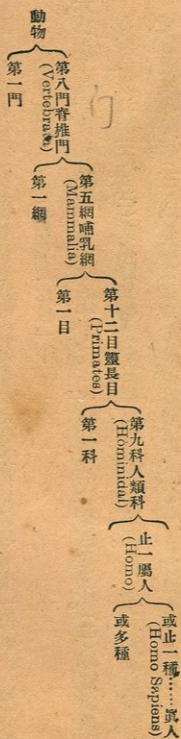 動物
第八門脊推門
(Vertebrata)
第一門
第五網哺乳網
(Mammalia)
第一綱
第十二目靈長目
(Primates)
第一目
第九科人類科
(Hominidal)
第一科
止一屬人
(Homo)
或止一種……眞人
(Homo Sapiens)
或多種
门